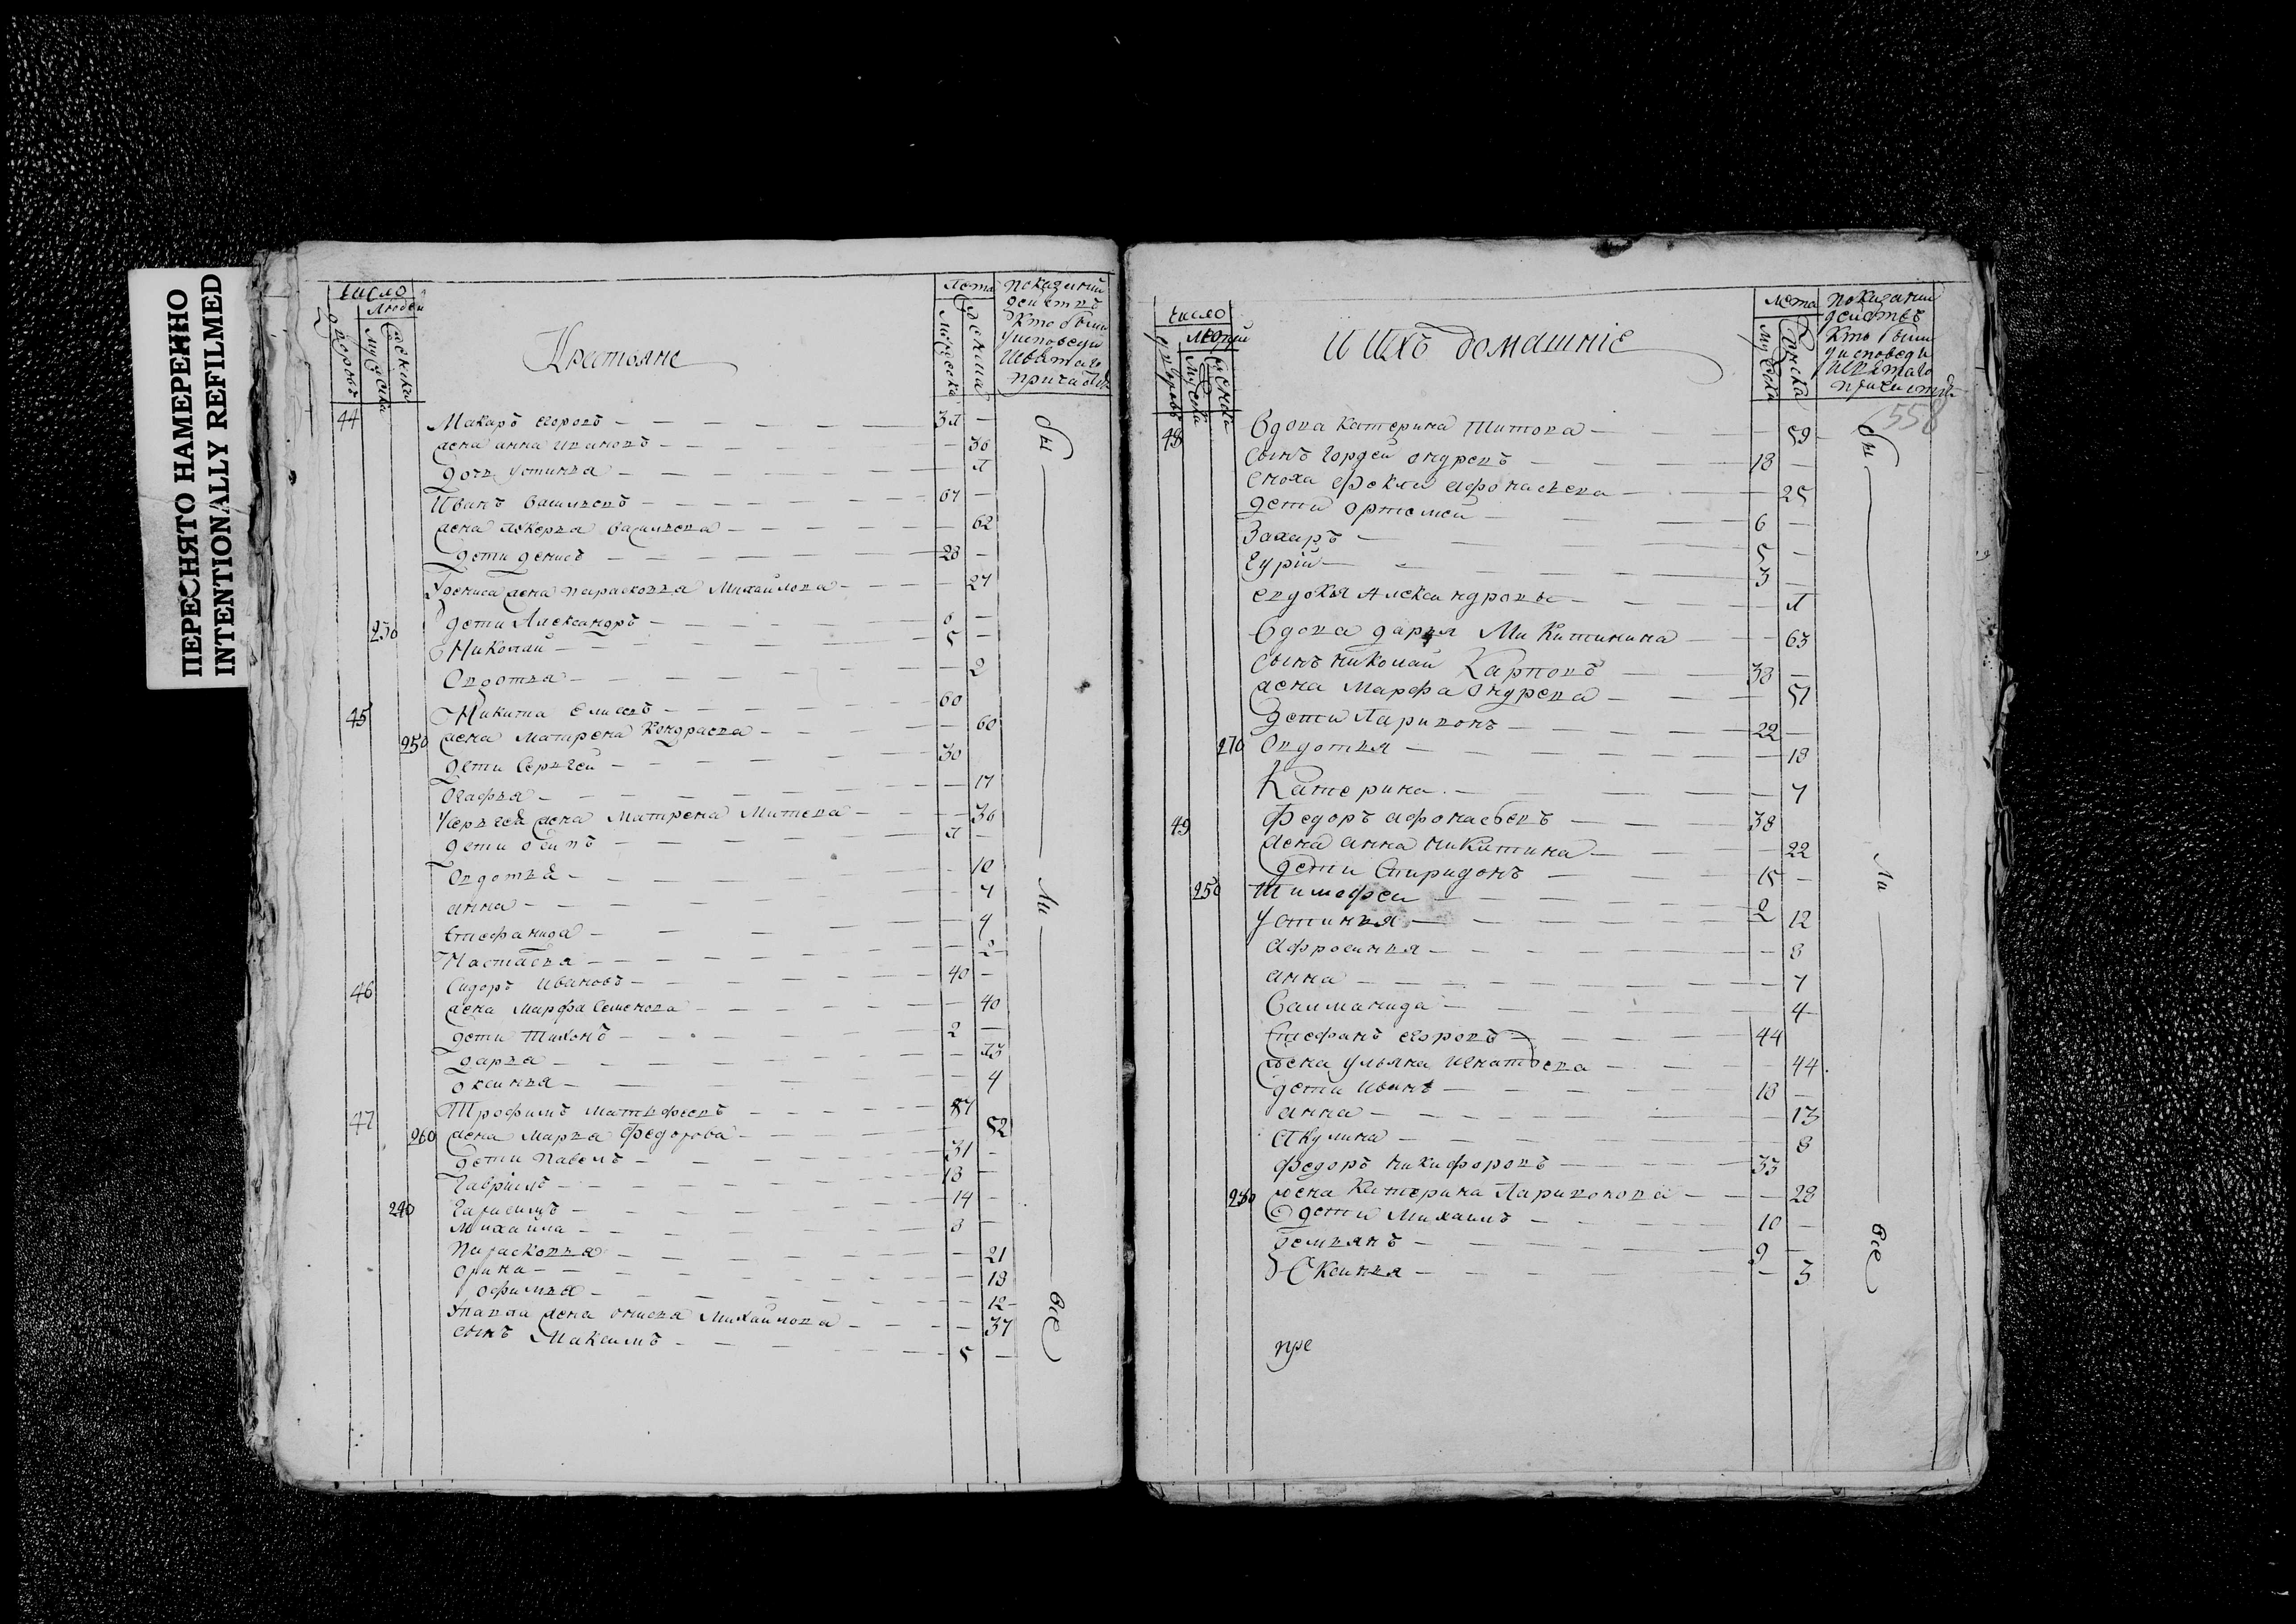 ПЕРЕСНЯТО НАМЕРЕННО
INTENTIONALLY REFILMED
число
людей
дворовъ
мужеска
женска
Крестьяне
Лета
мужеска
женска
показании
действъ
кто были
у исповеди
и святаго
причастия
44 Макаръ егоровъ 3л
жена анна Иванова 36
дочь устинья л
Иванъ Васильевъ 67
жена Лекерья васильева 62
дети денисъ 28
У дениса жена парасковья Михайлова 27
230 дети Александръ 6
Николай 5
Овдотья 2
45 Никита Елисеевъ 60
250 жена Матрена Кондрасва 60
дети Сергей 30
Огафья 17
У сергея жена Матрена Митева 36
дети осипъ л
Овдотья 10
анна 7
Стефанида 4
Настасья 2
46 Сидоръ Ивановъ 40
жена Марфа Семенова 40
дети Тихонъ 2
дарья л3
Оксинья 4
47 Трофимъ Матвфеевъ 57
260 жена Марья Федорова 52
дети павелъ 31
Гаврилъ 18
240 Гарасимъ 14
Михайла 8
парасковья 21
орина 18
офимья 12
У павла жена онисья Михайлова 37
сынъ Максимъ 5
бы ли все
число
людей
дворовъ
мужеска
женска
И ИХЪ домашніе
лета
мужеска
женска
показании
действъ
кто были
у исповеди
и святаго
причастия
558
48 Вдова катерина Титова 59
сынъ Гордей ондревъ 18
сноха фекла афонасьева 25
дети ортемей 6
Захаръ 5
Гурій 3
евдокья Александрова л
Вдова дарья Микитинина 63
сынъ николай Карповъ 38
жена Марфа ондрева 51
дети Ларивонъ 22
270 Овдотья 18
Катерина 7
49 Федоръ афонасьевъ 38
жена анна никитина 22
дети Спиридонъ 15
250 Тимофеи 2
устинья 12
афросинья 8
анна 7
Салманида 4
Стефанъ егоровъ 44
жена ульяна игнатьева 44
дети Иванъ 18
анна 13
Акулина 8
федоръ никифоровъ 33
280 жена Катерина Ларивонова 28
дети Михаилъ 10
демьянъ 9
Оксинья 3
бы ли все
пре